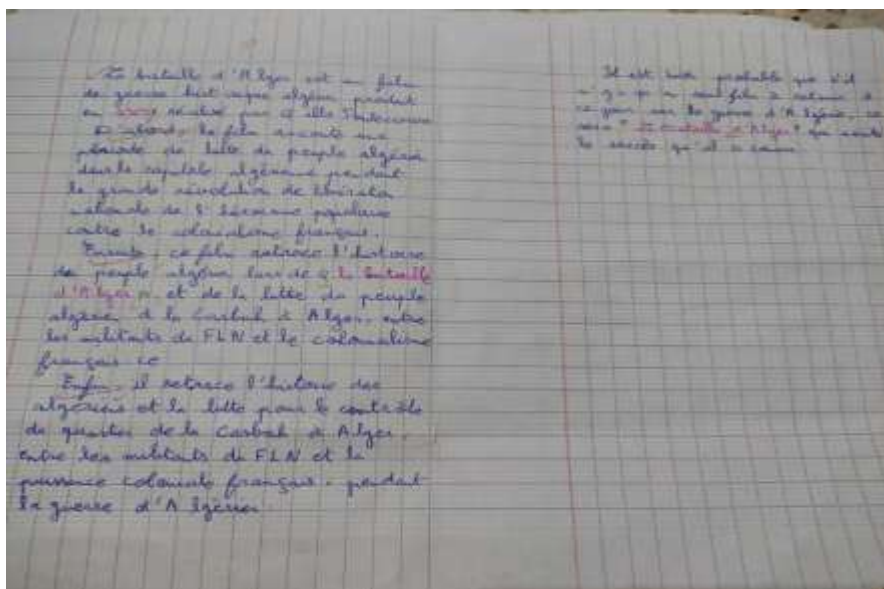 La bataille d'Alger est un film
de guerre historique algéro produit
en réalisé par Gillo Pontecorvo
D'abord, le film raconte une
période de lutte du peuple algérien
dans la capitale algérienne pendant
la grande révolution de libération
nationale de
contre le colonialisme français.
Ensuite, ce film retrace l'histoire
du peuple algérien lors de « la bataille
d'Alger » et de la lutte du peuple
algérien à la Casbah d'Alger, entre
les militants du FLN et le colonialisme
français
Enfin, il retrace l'histoire des
algériens et la lutte pour le contrôle
du quartier de la Casbah à Alger,
entre les militants du FLN et la
puissance coloniale français, pendant
la guerre d'Algérie.
Il est probable que s'il
n'y a qu'un seul film à retenir à
ce jour sur la guerre d'Algérie, ce
sera "La bataille d'Alger"
le succès qu'il a connu